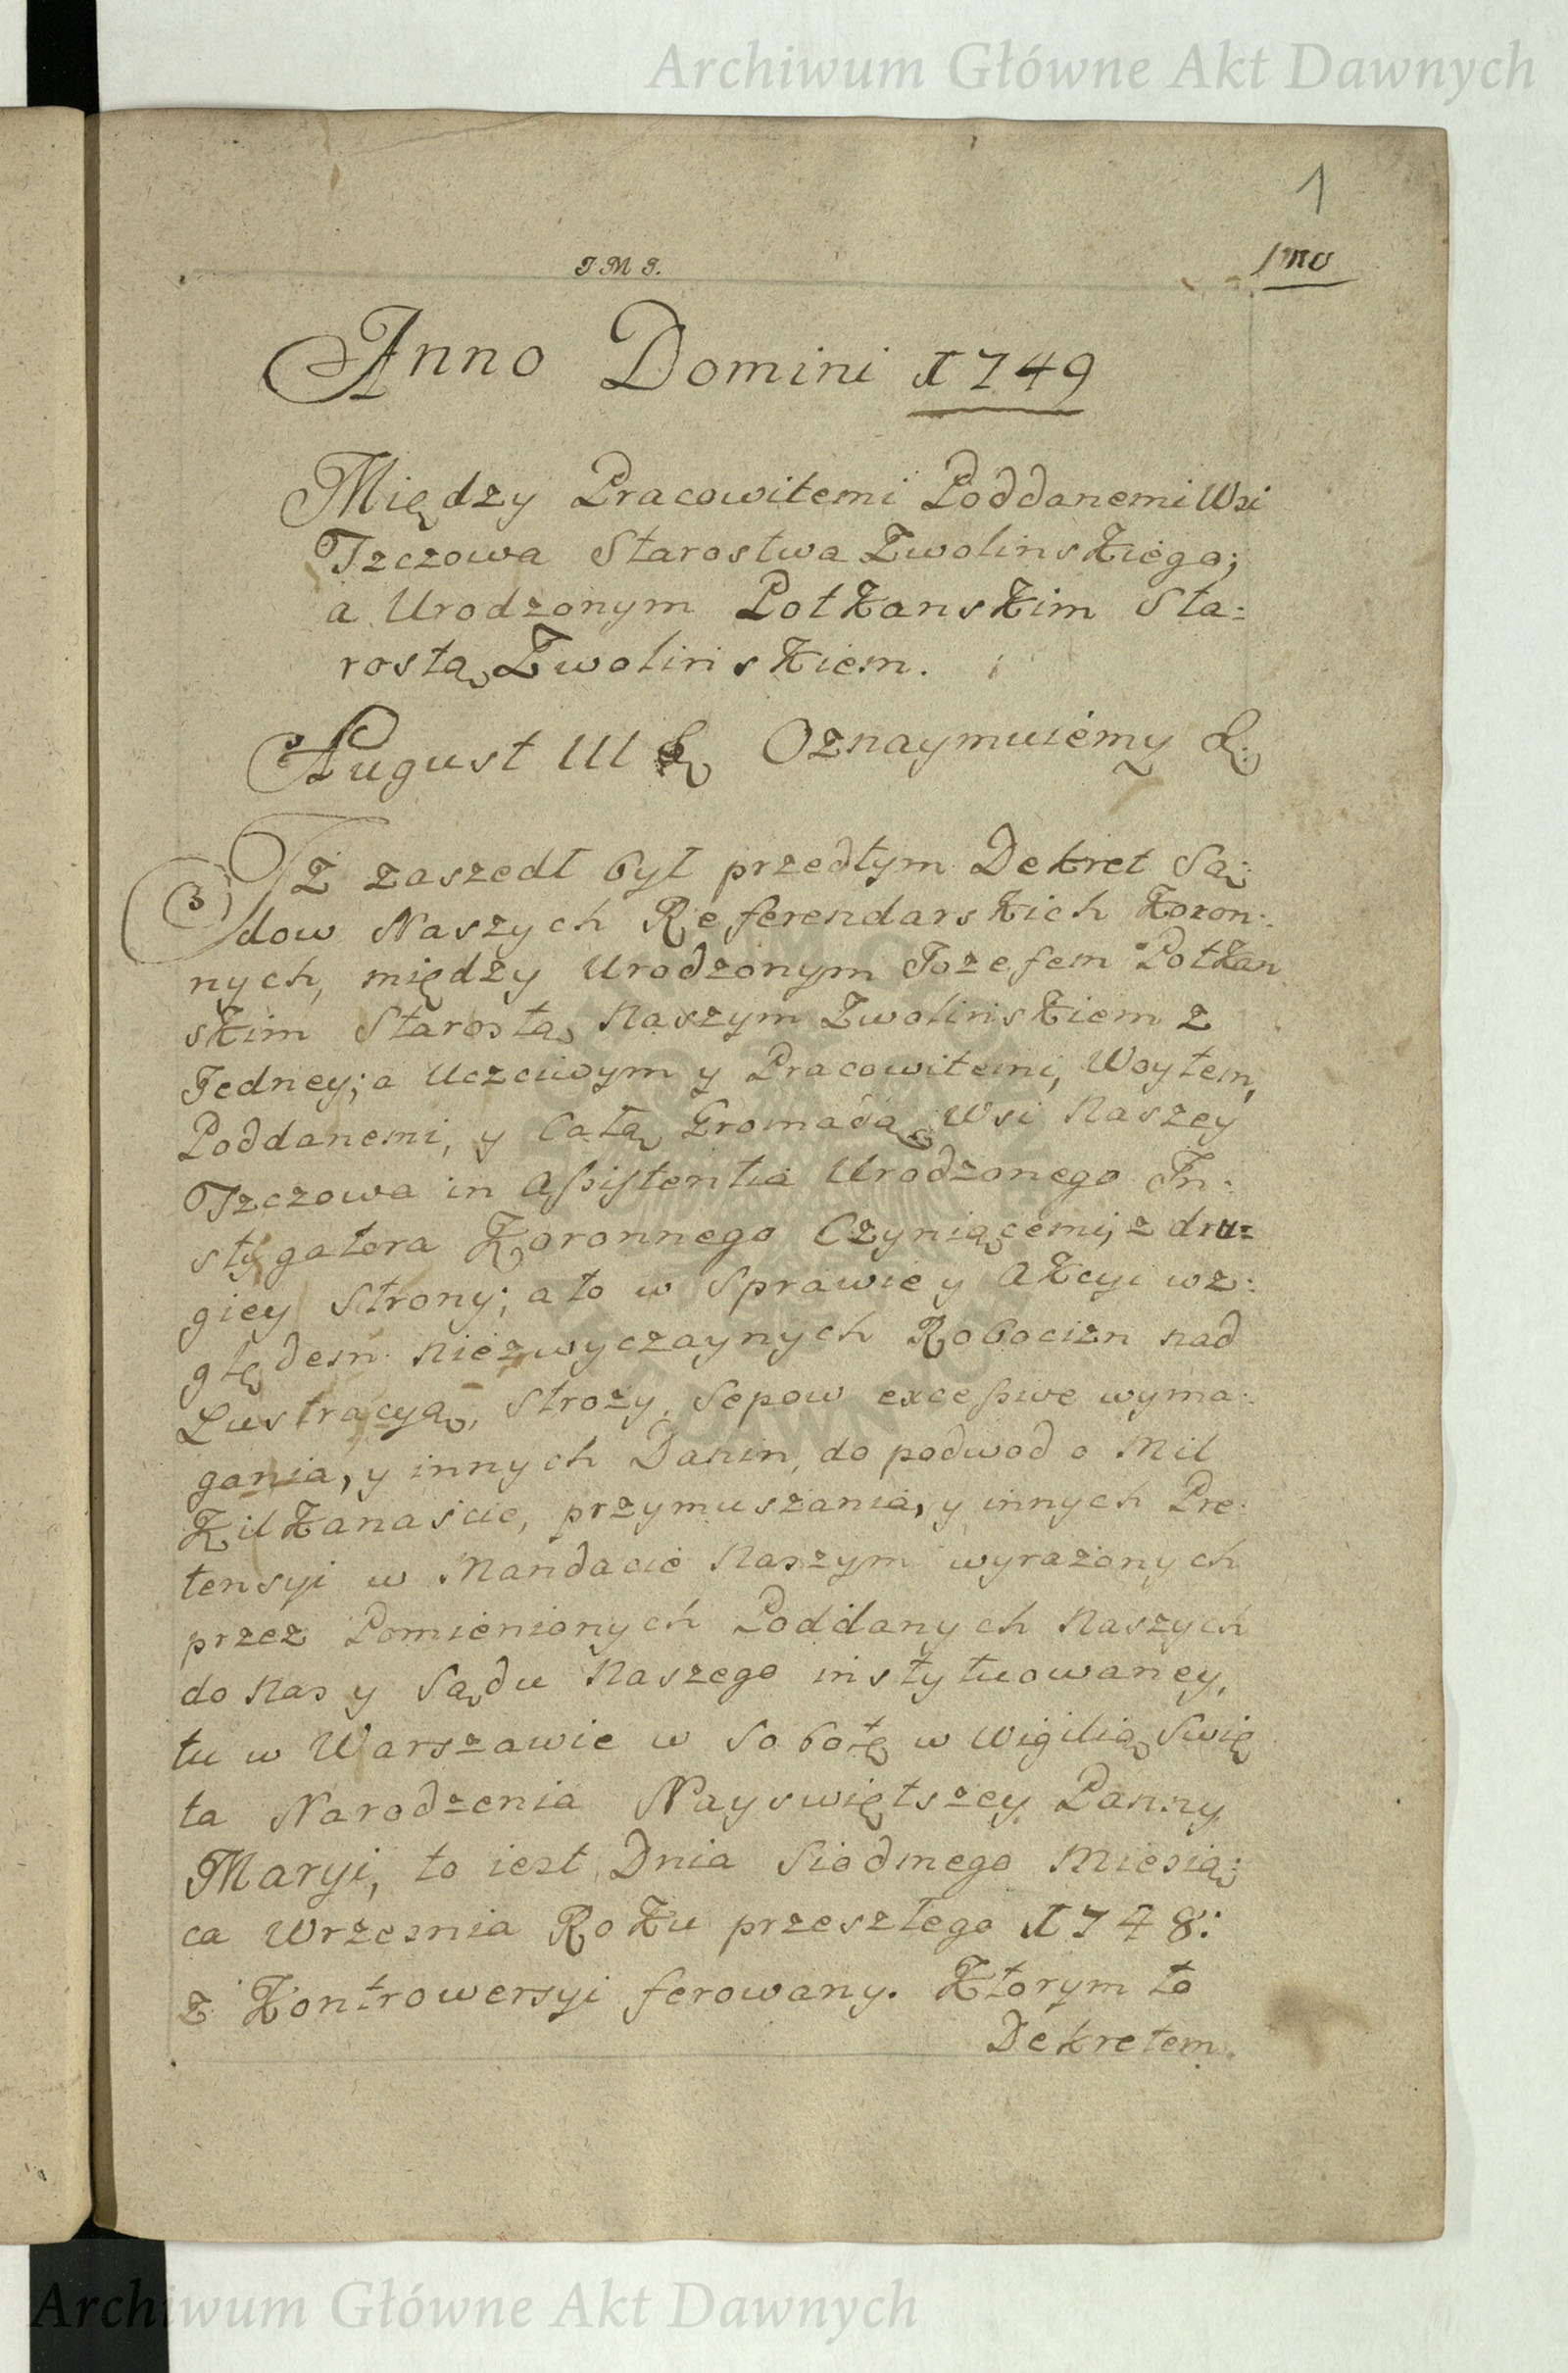 Archiwum Główne Akt Dawnych
1
1mo
J. M. J.
Anno Domini 1749
Między Pracowitemi Poddanemi Wsi
Tzczowa Starostwa Zwolinskiego;
a Urodzonym Potkanskim Sta:
rostą Zwolinskiem.
August III & Oznaymuiemy &
Iż zaszedł był przedtym Dekret Są:
dow Naszych Referendarskich Koron:
nych, między Urodzonym Jozefem Potkan
skim Starostą Naszym Zwolinskiem z
Jedney; a Uczciwym y Pracowitemi, Woytem,
Poddanemi, y Całą Gromadą Wsi Naszey
Tzczowa in Assistentia Urodzonego In:
stygatora Koronnego Czyniącemi, z dru=
giey Strony; a to w Sprawie y Akcyi wz:
ględem niezwyczaynych Robocizn nad
Lustracyą, Stroży, Sepow excessive wyma:
gania, y innych Danin, do podwod o Mil
Kilkanaście, przymuszania, y innych Pre:
tensyi w Mandacie Naszym wyrażonych
przez Pomienionych Poddanych Naszych
do Nas y Sądu Naszego instytuowaney,
tu w Warszawie w Sobotę w Wigilią Swię
ta Narodzenia Nayswiętszey Panny
Maryi, to iest Dnia Siodmego Miesią:
ca Wrzesnia Roku przeszłego 1748:
z Kontrowersyi ferowany. Ktorym to
Dekretem.
Archiwum Główne Akt Dawnych